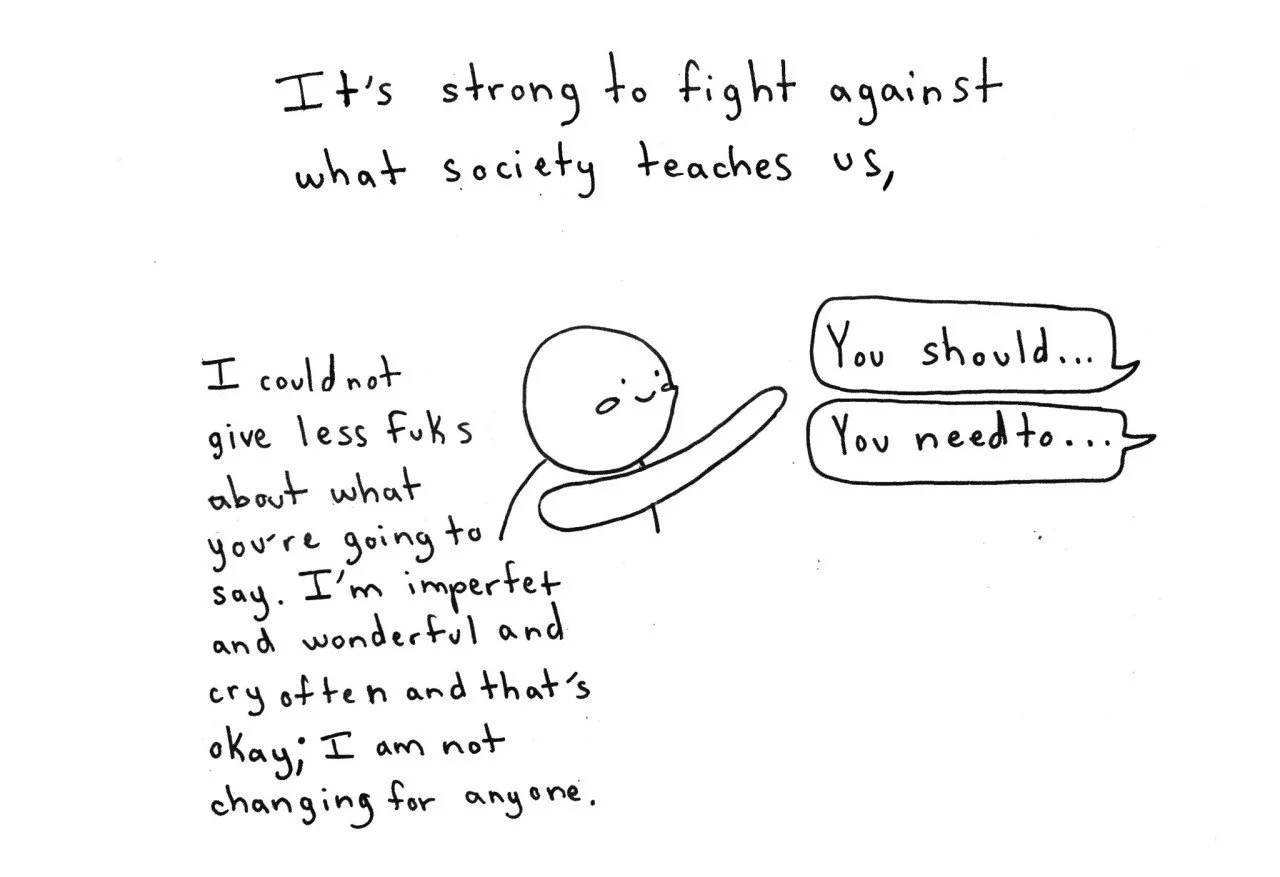 It's strong to fight against
what society teaches us,
You should...
You need to...
I could not
give less fuks
about what
you're going to
say. I'm imperfet
and wonderful and
cry often and that's
okay; I am not
changing for anyone.